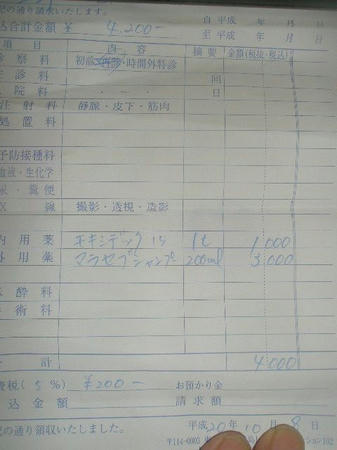 記の通り請求いたします。
自 平成 年 月 日
込合計金額 ¥ 4,200-
至 平成 年 月 日
項目 内容 摘要 金額(税抜・税込)
診察料 初診・再診・時間外特診
往診料 回
入院料 ・ - ・ 日
注射料 静脈・皮下・筋肉
処置料
予防接種料
血液・生化学
尿・糞便
X 線 撮影・透視・造影
内用薬 エキシデック 15 1t 1,000
外用薬 マラセブシャンプー 200ml 3,000
麻酔料
手術料
計 4,000
費税(5%) ¥200- お預かり金
込金額 請求額
記の通り領収いたしました。 平成20年10月8日
〒114-0003
ション102